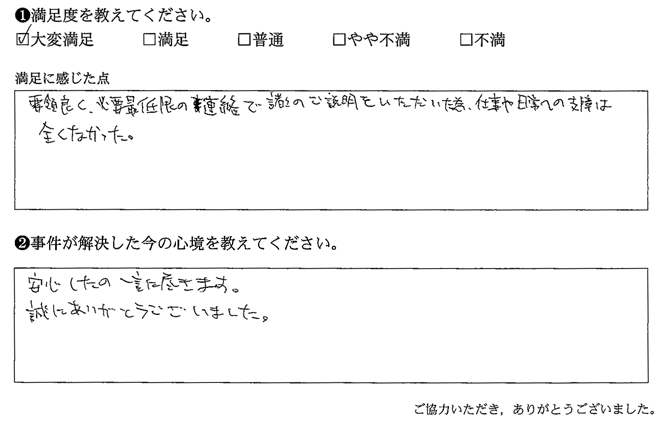 ❶満足度を教えてください。
☑大変満足 □満足 □普通 □やや不満 □不満
満足に感じた点
要領良く、必要最低限の連絡で諸々のご説明をいただいた為、仕事や日常への支障は
全くなかった。
❷事件が解決した今の心境を教えてください。
安心したの一言に尽きます。
誠にありがとうございました。
ご協力いただき，ありがとうございました。